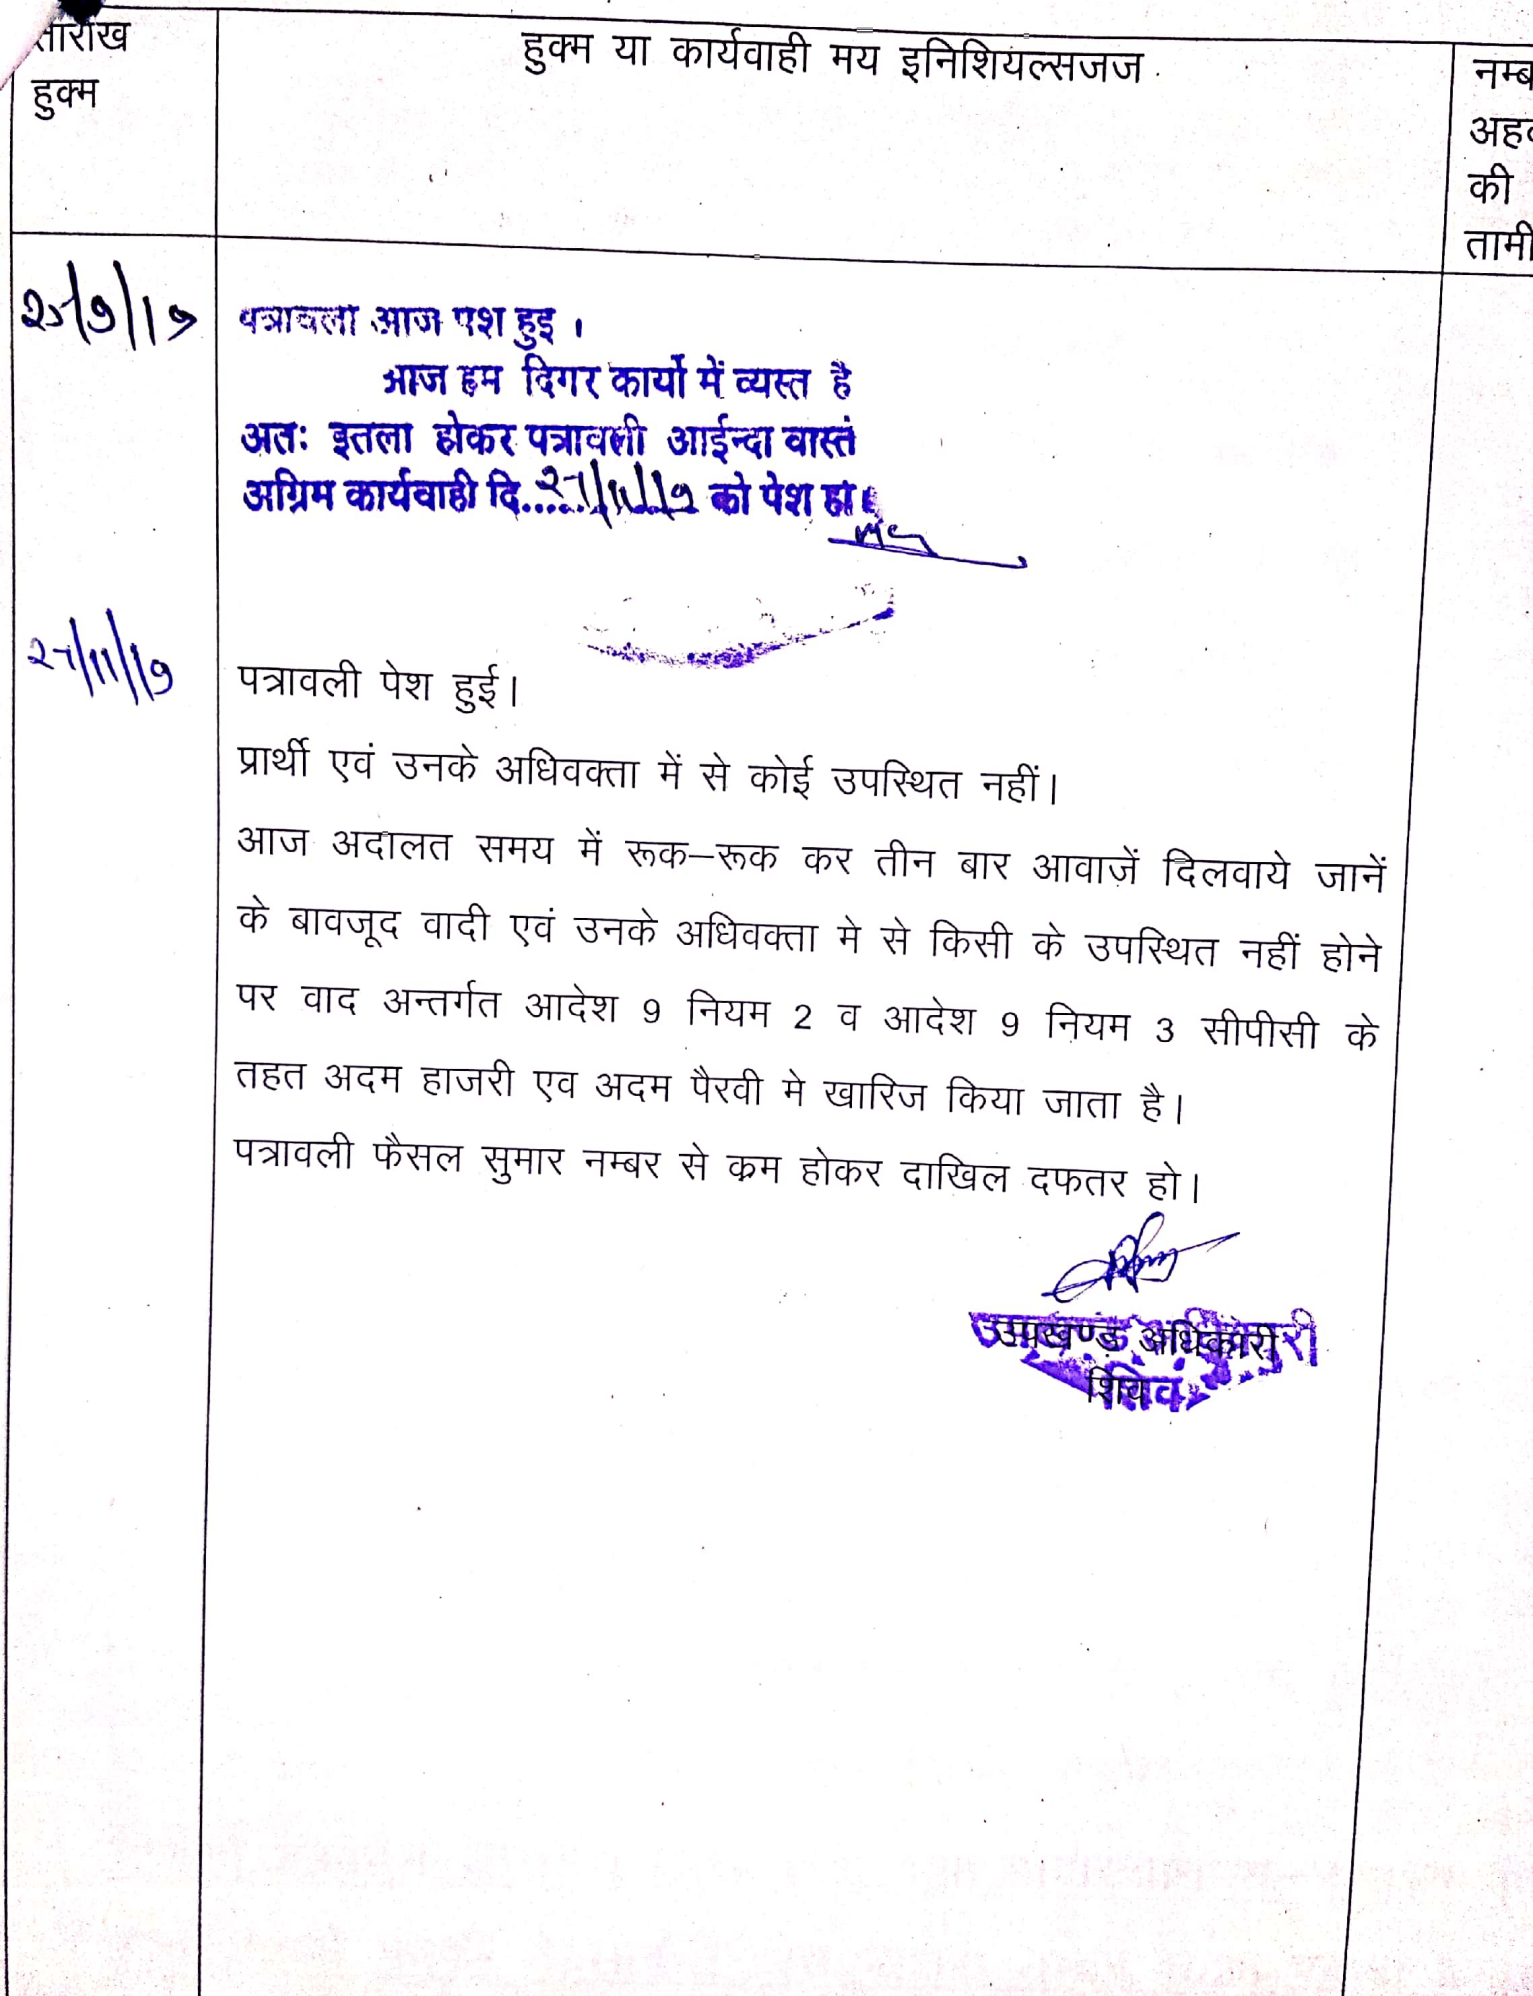 तारीख
हुक्म
हुक्म या कार्यवाही मय इनिशियल्सजज
नम्ब
अह
की
तामी
पत्रावली आज पेश हुई ।
आज हम दिगर कार्यो में व्यस्त है
अतः इतला होकर पत्रावली आईन्दा वास्तें
अग्रिम कार्यवाही दि...... को पेश हो।
पत्रावली पेश हुई।
प्रार्थी एवं उनके अधिवक्ता में से कोई उपस्थित नहीं।
आज अदालत समय में रूक–रूक कर तीन बार आवाज़ें दिलवाये जानें
के बावजूद वादी एवं उनके अधिवक्ता मे से किसी के उपस्थित नहीं होने
पर वाद अन्तर्गत आदेश 9 नियम 2 व आदेश 9 नियम 3 सीपीसी के
तहत अदम हाजरी एव अदम पैरवी मे खारिज किया जाता है।
पत्रावली फैसल सुमार नम्बर से कम होकर दाखिल दफतर हो।
उपखण्ड अधिकारी
शिव